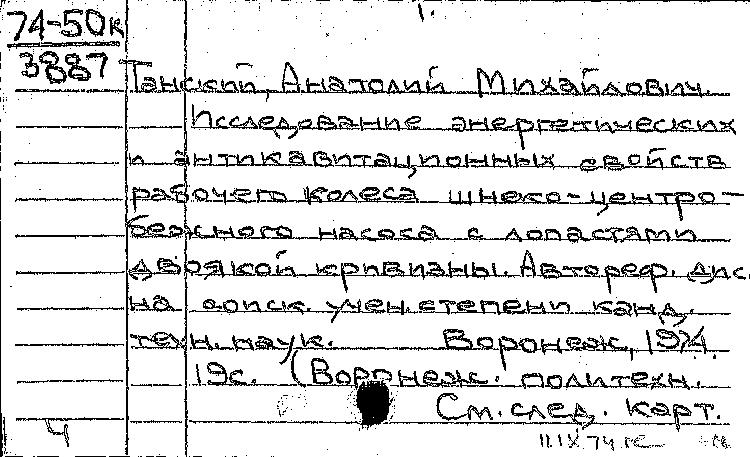 1.
74-50к
3887
Танский, Анатолий Михайлович.
Исследование энергетических
и антикавитационных свойств
рабочего колеса шнеко-центро-
бежного насоса с лопастями
двоякой кривизны. Автореф. дис.
на соиск. учен. степени канд.
техн. наук. Воронеж, 1974.
19с. (Воронеж. политехн.
См. след. карт.
Ч
11.IX.74